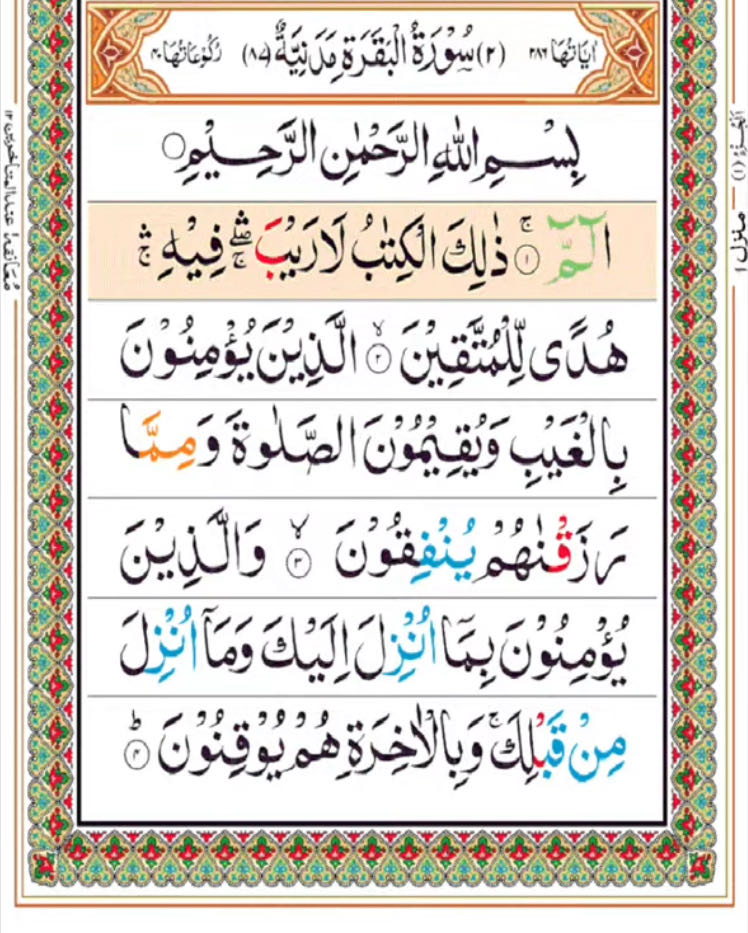 اٰيَاتُهَا ٢٨٦ (٢) سُوْرَةُ الْبَقَرَةِ مَدَنِيَّةٌ (٨٧) رُكُوْعَاتُهَا ٤٠
بِسْمِ اللّٰهِ الرَّحْمٰنِ الرَّحِيْمِ ○
الٓمّٓ ۚ ۝١ ذٰلِكَ الْكِتٰبُ لَا رَيْبَ ۛۖۚ فِيْهِ ۛۚ
هُدًى لِّلْمُتَّقِيْنَ ۙ ۝٢ الَّذِيْنَ يُؤْمِنُوْنَ
بِالْغَيْبِ وَيُقِيْمُوْنَ الصَّلٰوةَ وَمِمَّا
رَزَقْنٰهُمْ يُنْفِقُوْنَ ۙ ۝٣ وَالَّذِيْنَ
يُؤْمِنُوْنَ بِمَآ اُنْزِلَ اِلَيْكَ وَمَآ اُنْزِلَ
مِنْ قَبْلِكَ ۚ وَبِالْاٰخِرَةِ هُمْ يُوْقِنُوْنَ ؕ ۝٤
اَلْجُزْءُ (١)
منزل ١
مُعَانقه ١ عند المتأخرين ١٢